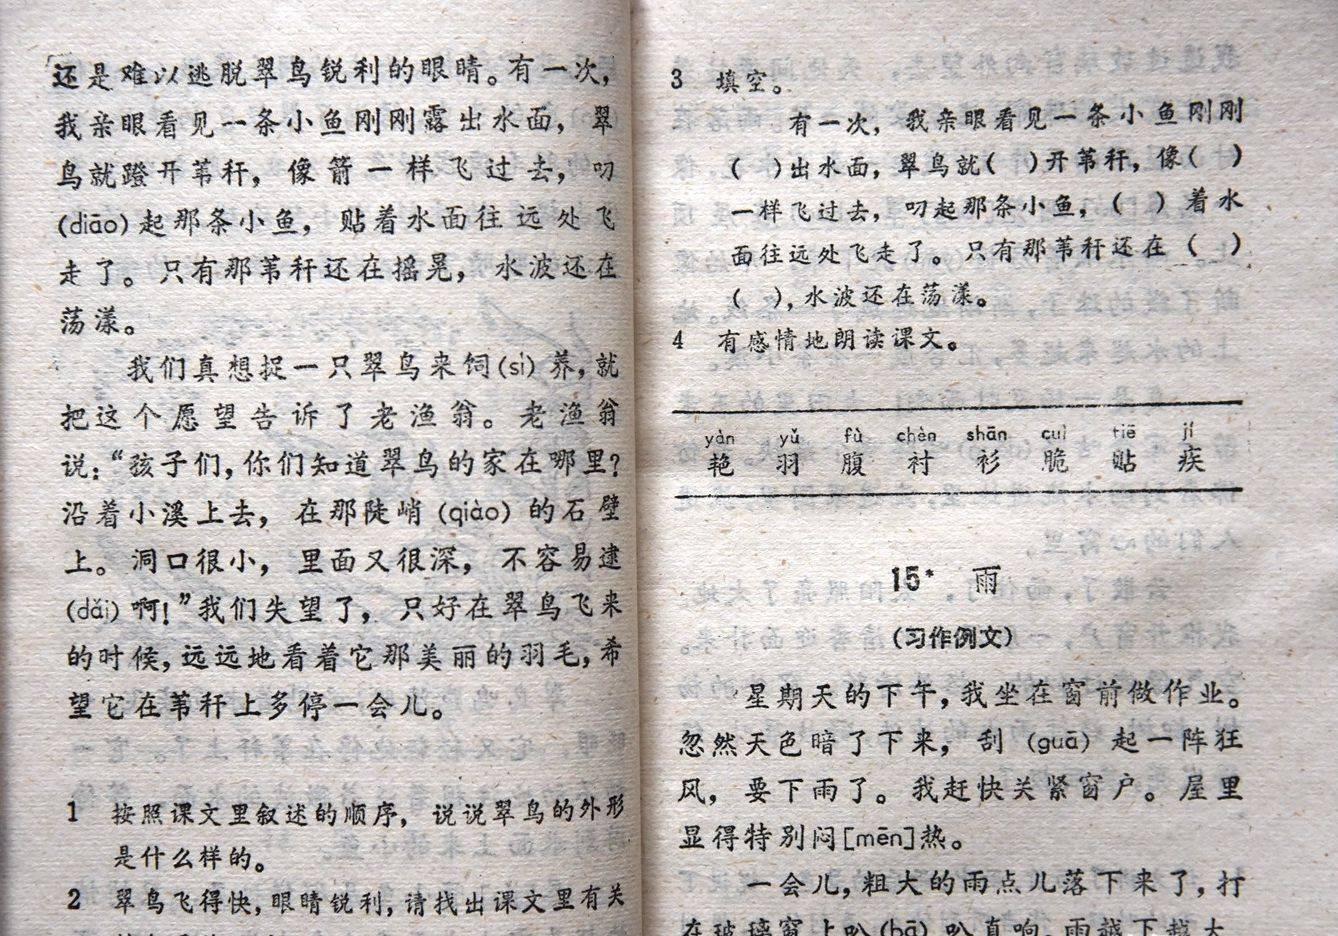 还是难以逃脱翠鸟锐利的眼睛。有一次,
我亲眼看见一条小鱼刚刚露出水面, 翠
鸟就蹬开苇秆, 像箭一样飞过去, 叨
(diāo)起那条小鱼, 贴着水面往远处飞
走了。只有那苇秆还在摇晃, 水波还在
荡漾。
我们真想捉一只翠鸟来饲(sì)养,就
把这个愿望告诉了老渔翁。老渔翁
说:“孩子们,你们知道翠鸟的家在哪里?
沿着小溪上去, 在那陡峭(qiào)的石壁
上。洞口很小, 里面又很深, 不容易逮
(dǎi)啊!”我们失望了, 只好在翠鸟飞来
的时候,远远地看着它那美丽的羽毛,希
望它在苇秆上多停一会儿。
1 按照课文里叙述的顺序, 说说翠鸟的外形
是什么样的。
2 翠鸟飞得快,眼睛锐利,请找出课文里有关
3 填空。
有一次, 我亲眼看见一条小鱼刚刚
( )出水面, 翠鸟就( )开苇秆,像( )
一样飞过去, 叨起那条小鱼,( )着水
面往远处飞走了。只有那苇秆还在( )
( ),水波还在荡漾。
4 有感情地朗读课文。
yàn yǔ fù chèn shān cuì tiē jí
艳 羽 腹 衬 衫 脆 贴 疾
15* 雨
(习作例文)
星期天的下午,我坐在窗前做作业。
忽然天色暗了下来, 刮(guā)起一阵狂
风, 要下雨了。我赶快关紧窗户。屋里
显得特别闷[mēn]热。
一会儿,粗大的雨点儿落下来了,打
在玻璃窗上叭(bā)叭直响。雨越下越大。